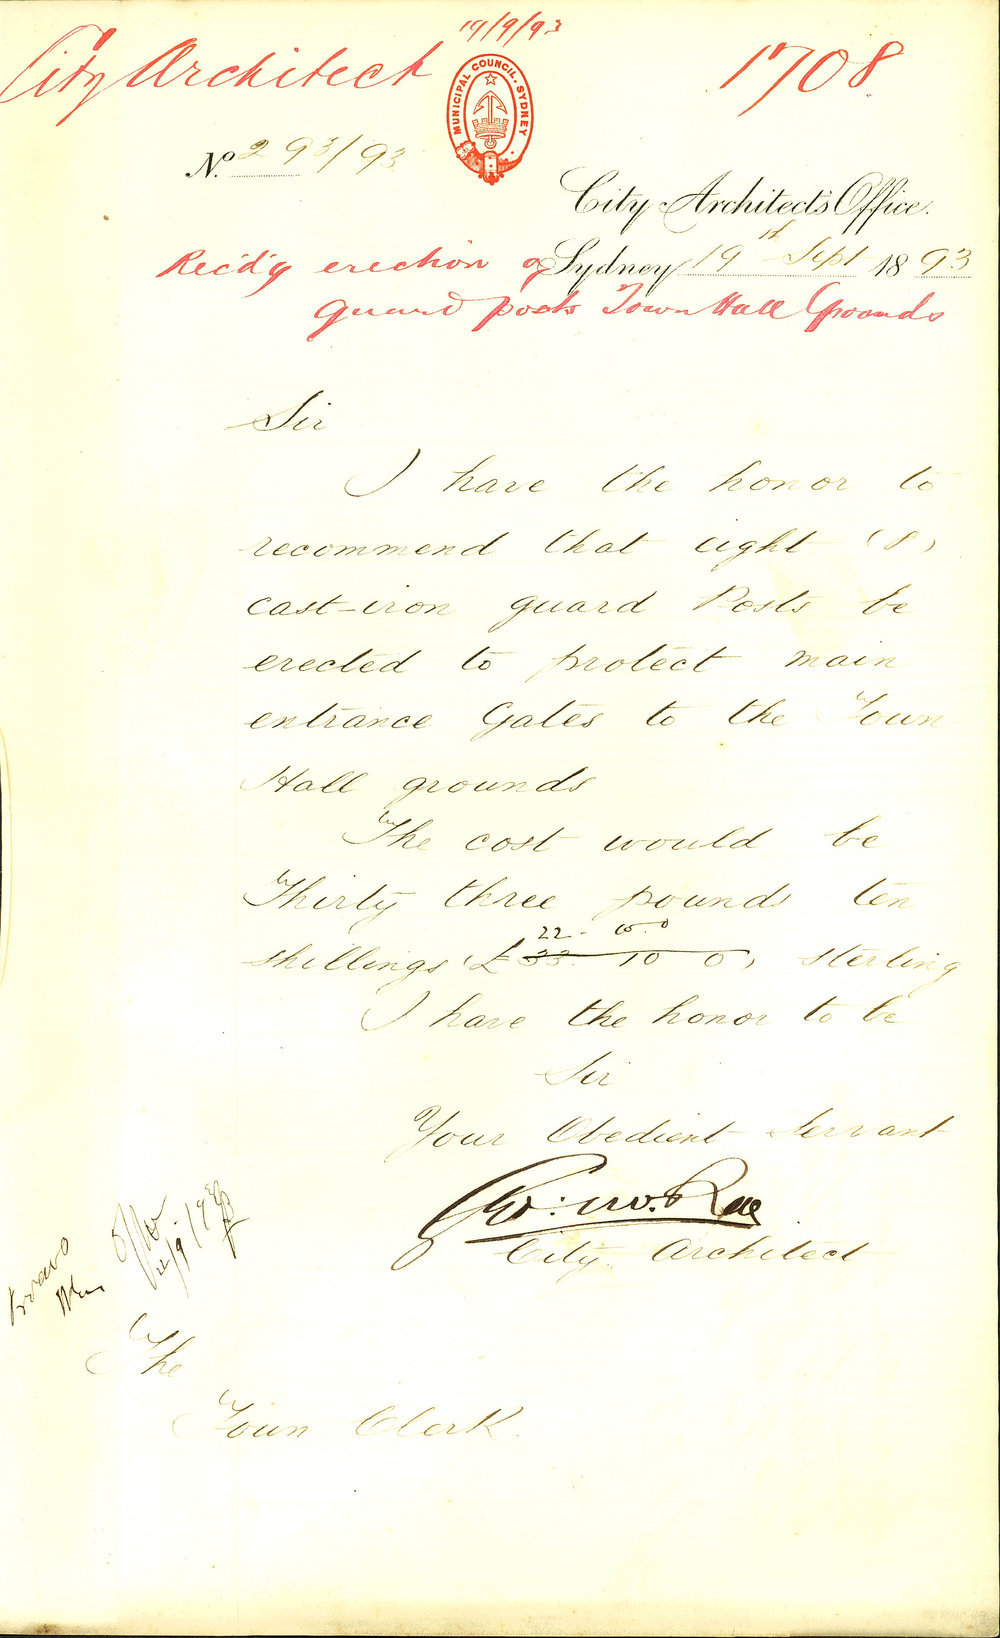 19/9/93
City Architect
1708
MUNICIPAL COUNCIL. SYDNEY
No. 293/93
City Architect's Office.
Sydney 19th Sept 1893
Rec'd'g erection of
guard posts Town Hall Grounds
Sir
I have the honor to
recommend that eight (8)
cast-iron guard Posts be
erected to protect main
entrance Gates to the Town
Hall grounds
The cost would be
Thirty three pounds ten
22. 10. 0
shillings (£33. 10 0) sterling
I have the honor to be
Sir
Your Obedient Servant
Geo: McRae
City Architect
The
Town Clerk